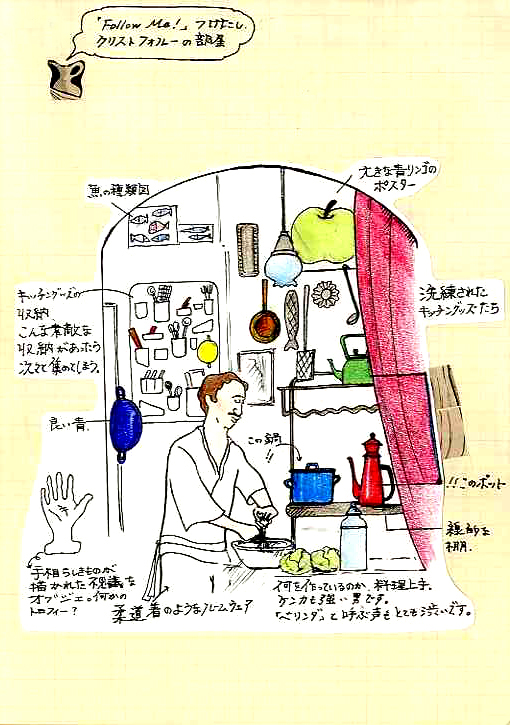 「Follow Me!」つけたし
クリストフォルーの部屋
大きな青リンゴの
ポスター
魚の種類図
キッチングッズの
収納
こんな素敵な
収納があったら
次々と集めてしまう。
洗練された
キッチングッズたち
良い青
この鍋
!!
!!このポット
棚
手相らしきものが
描かれた不思議な
オブジェ。何かの
トロフィー?
柔道着のようなルームウェア
何を作っているのか、料理上手。
ケンカも強い男です。
「ベリンダ」と呼ぶ声もとても渋いです。